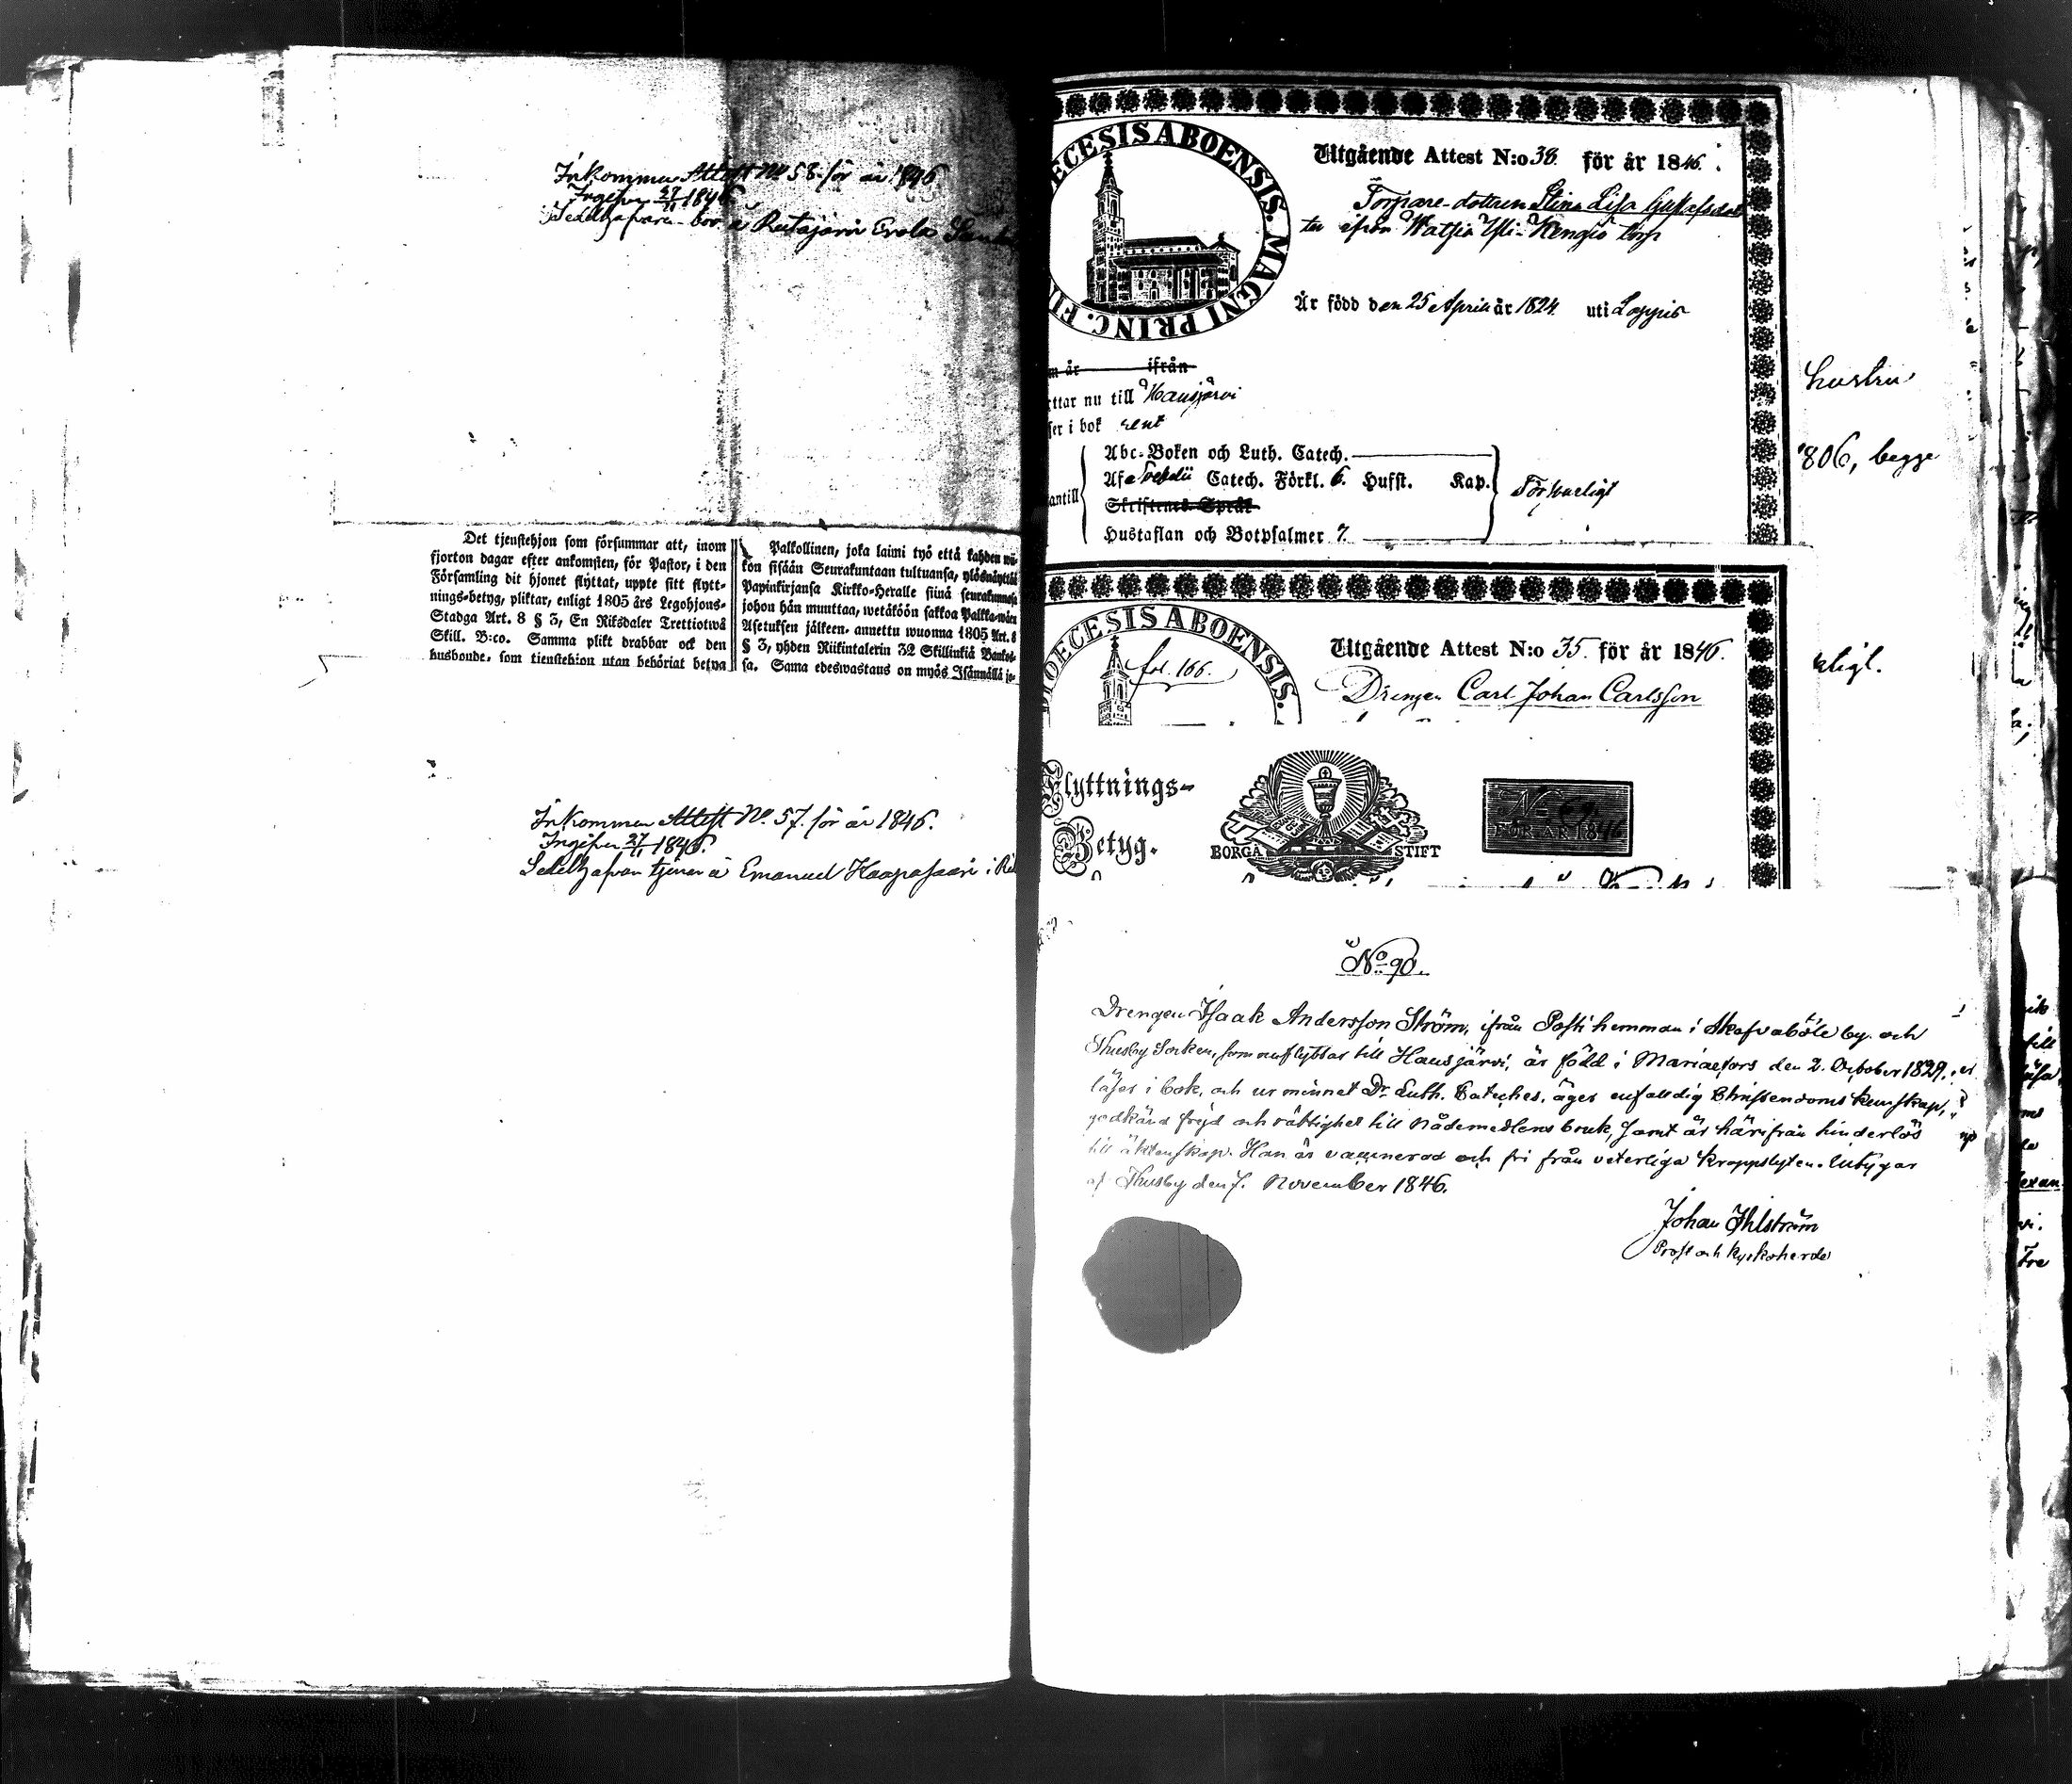 Inkommen Attest No 58 för år 1846
Ingifven 27/11 1846
Sedelhafvaren bor å Rutajärvi Erola
Det tjenstehjon som försummar att, inom
fjorton dagar efter ankomsten, för Pastor, i den
Församling dit hjonet flyttat, uppte sitt flytt-
nings-betyg, pliktar, enligt 1805 års Legohjons-
Stadga Art. 8 § 3, En Riksdaler Trettiotwå
Skill. B:co. Samma plikt drabbar ock den
husbonde, som tjenstehjon utan behörigt betyg
Palkollinen, joka laimi työ että kahden wii-
kon sisään Seurakuntaan tultuansa, ylösnäyttää
Papinkirjansa Kirkko-Heralle siinä seurakunnassa
johon hän muuttaa, wetäköön sakkoa Palkka-wäen
Asetuksen jälkeen, annettu wuonna 1805 Art. 8
§ 3, yhden Riikintalerin 32 Skillinkiä Bankos-
sa. Sama edeswastaus on myös Isännällä jo-
Inkommen Attest No. 57. för år 1846.
Ingifven 27/11 1846.
Sedelhafvaren tjenar å Emanuel Haapasaari i
DIOECESIS ABOENSIS. MAGNI PRINC. FI
Utgående Attest N:o 38. för år 1846.
Torpare-dottren Stina Lisa Gustafsdot
ter ifrån Watsia Yli-Kengiö torp
Är född den 25 April år 1824. uti Loppis
m år ifrån
ttar nu till Hausjärvi
ser i bok rent
Abc-Boken och Luth. Catech.
Af Svebilii Catech. Förkl. 6. Hufst. Kap.
antill
Försvarligt
Skriftenes Språk
Hustaflan och Botpsalmer 7.
hustru
1806, begge
DIOECESIS ABOENSIS.
fol. 166.
Utgående Attest N:o 35. för år 1846.
Drengen Carl Johan Carlsson
rligt.
Flyttnings-
Betyg.
BORGÅ STIFT
N:o 69.
FÖR ÅR 1846
No 90.
Drengen Isaak Andersson Ström, ifrån Posti hemman i Skafvaböle by och
Thusby Socken, som nu flyttar till Hausjärvi, är född i Mariaefors den 2. October 1829.
läser i bok, och ur minnet Dr. Luth. Cateches. äger enfaldig Christendoms kunskap,
godkänd fräjd och rättighet till Nådemedlens bruk, samt är härifrån hinderlös
till äktenskap. Han är vaccinerad och fri från veterliga kroppslyten. Betygar
af Thusby den 7. November 1846.
Johan Ihlström
Prost och Kyrkoherde